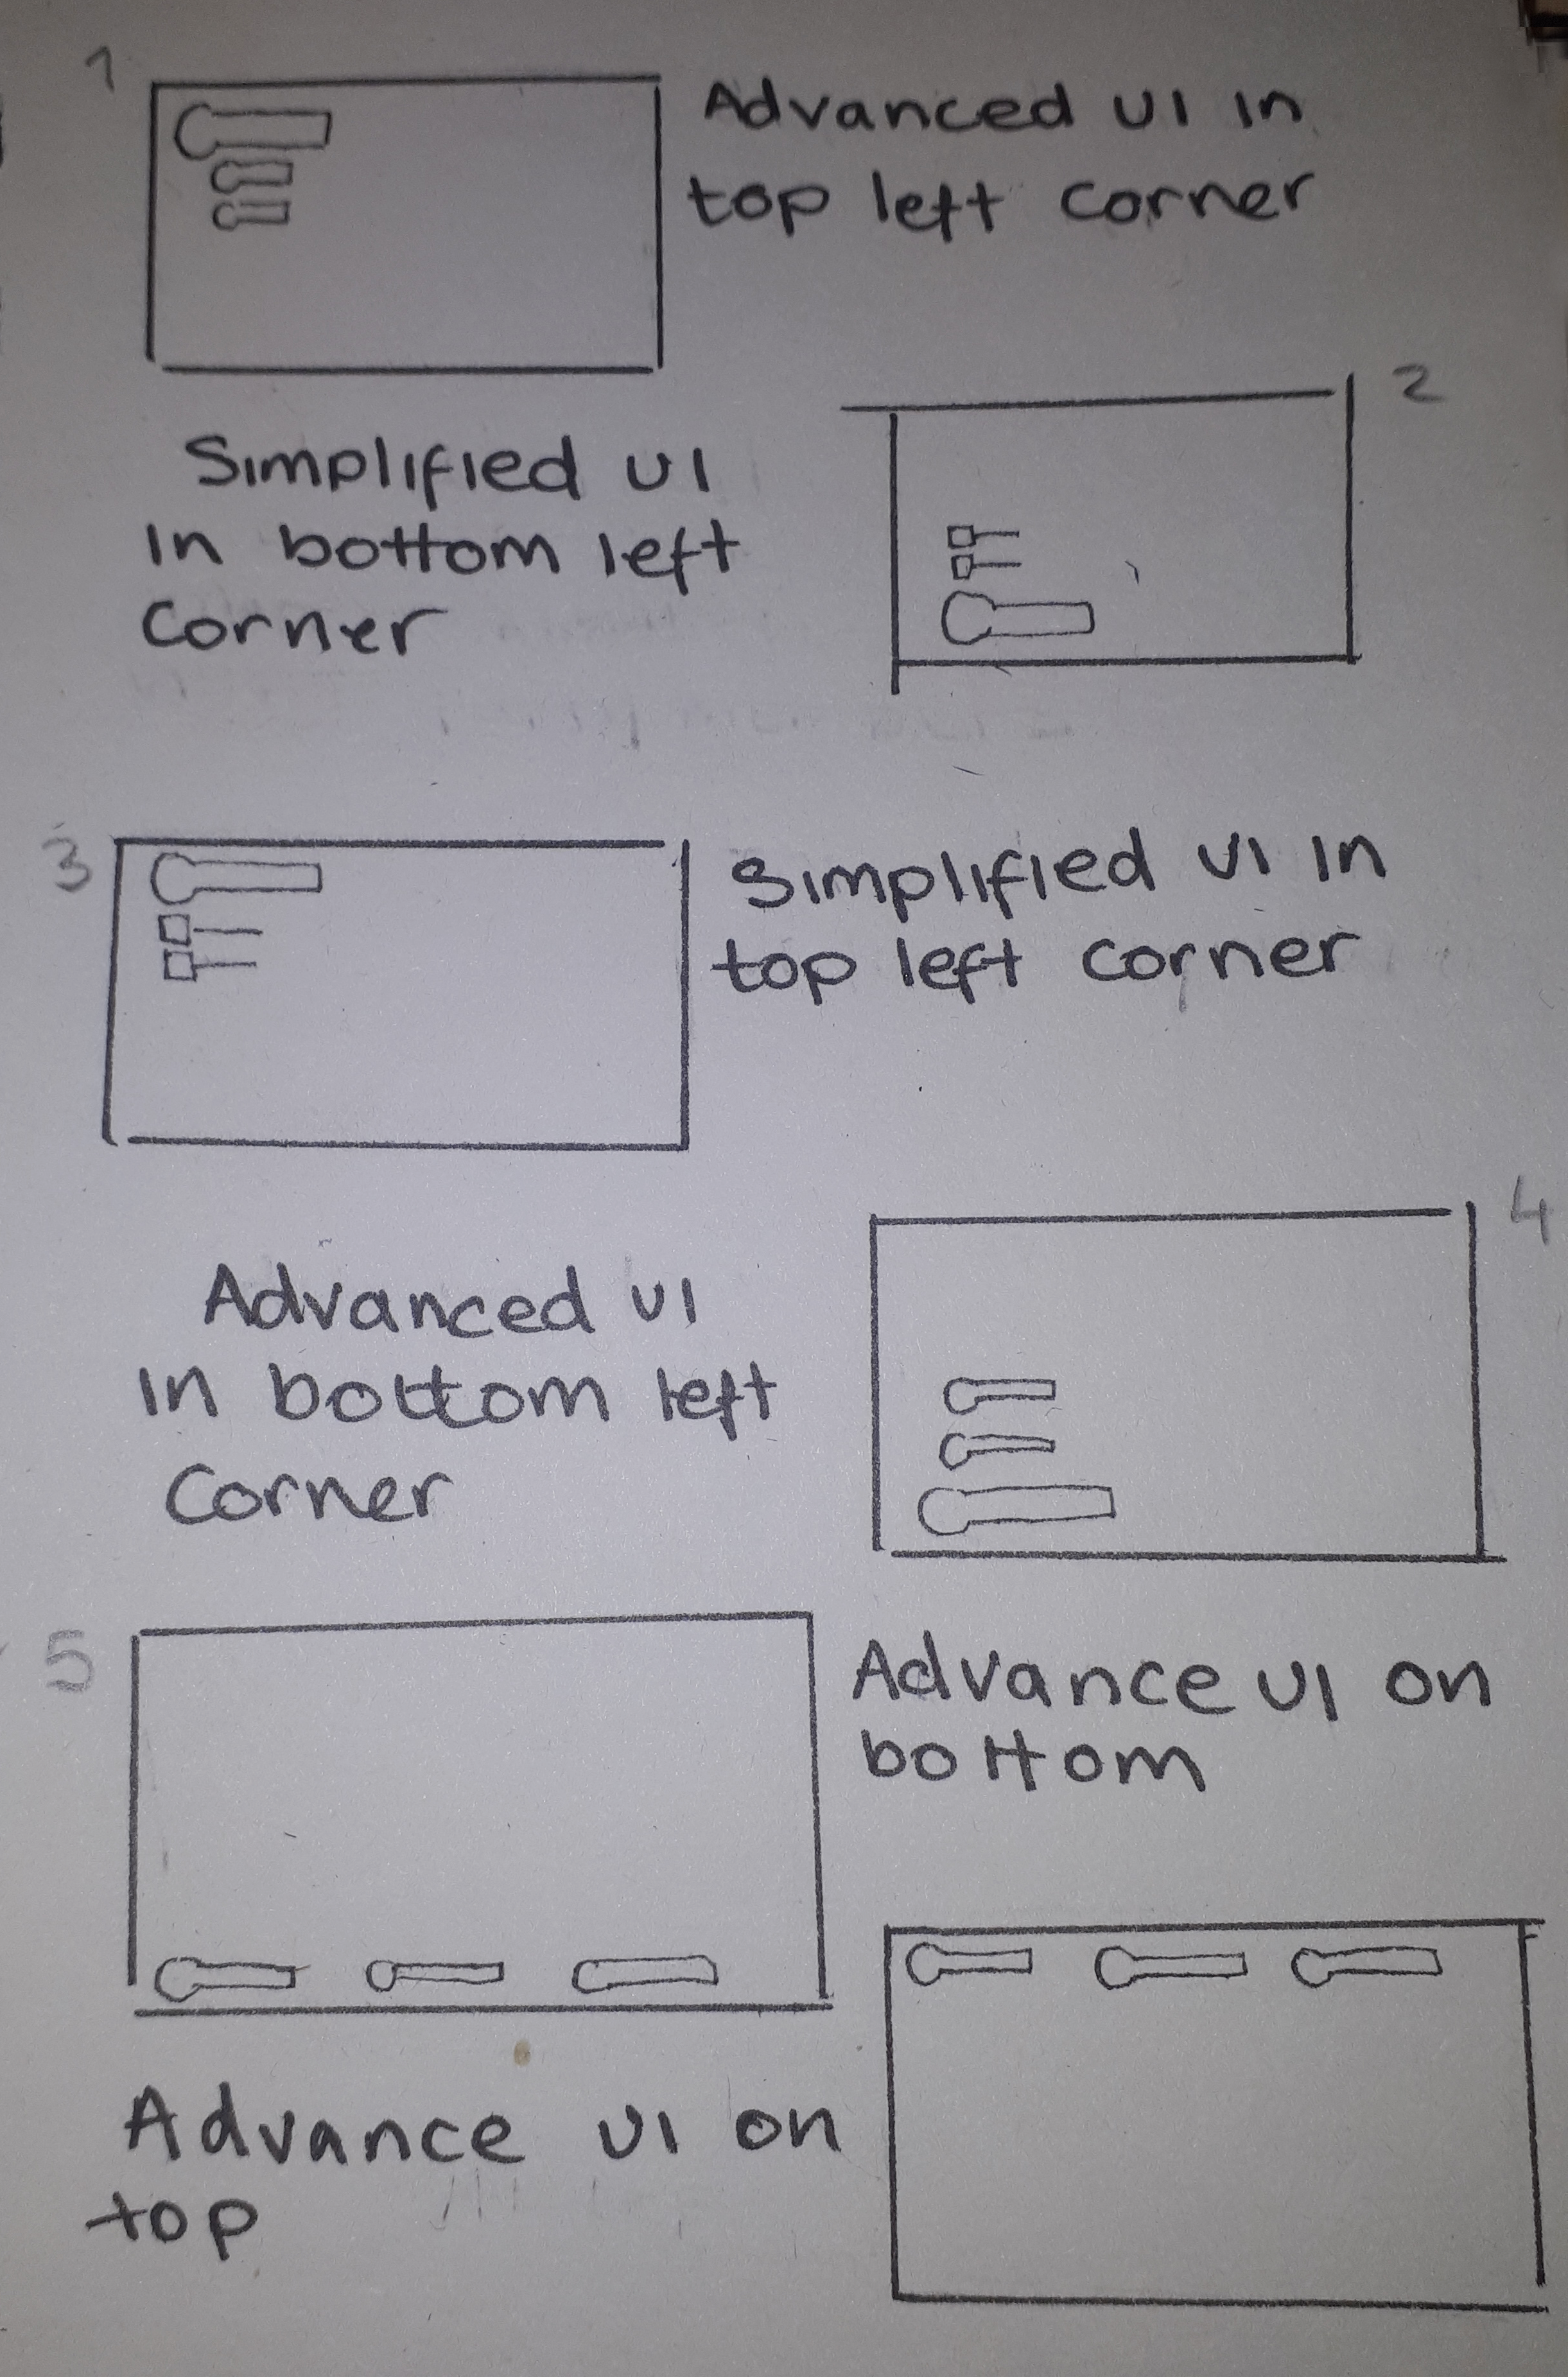 1
Advanced UI in
top left corner
2
Simplified UI
in bottom left
corner
3
Simplified UI in
top left corner
4
Advanced UI
in bottom left
corner
5
Advance UI on
bottom
Advance UI on
top